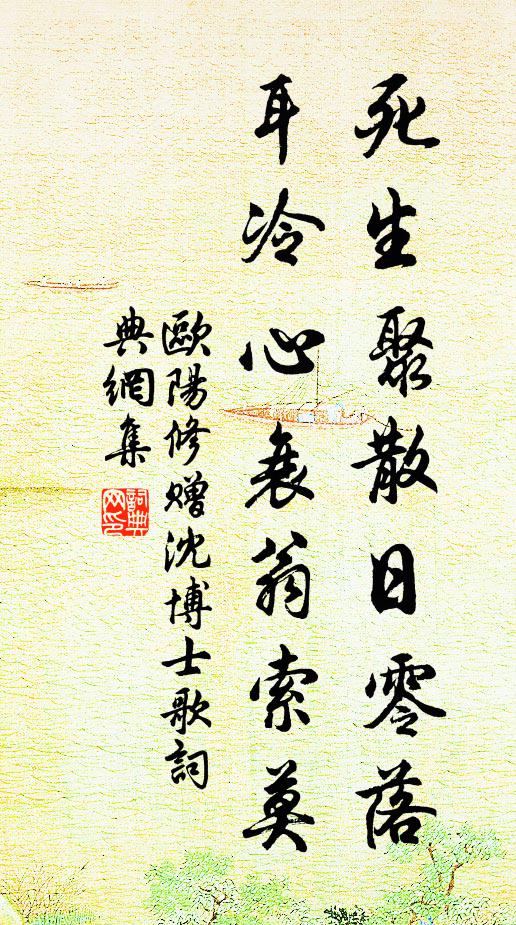 死生聚散日零落
耳冷心衰翁索莫
歐陽修贈沈博士歌詞
典網集
詞典
网印